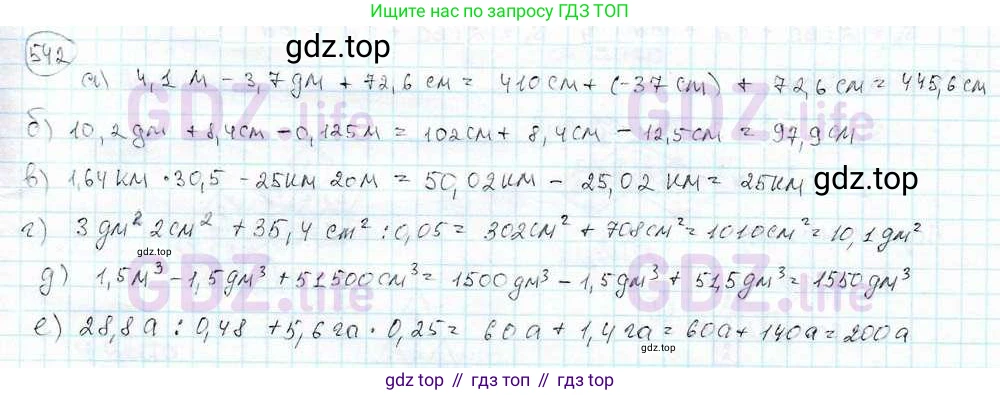 Ищите нас по запросу ГДЗ ТОП
542
gdz.top
а) 4,1 м - 3,7 дм + 72,6 см = 410 см + (-37 см) + 72,6 см = 445,6 см
GDZ.life
GDZ.life
б) 10,2 дм + 8,4 см - 0,125 м = 102 см + 8,4 см - 12,5 см = 97,9 см
в) 1,64 км · 30,5 - 25 км 20 м = 50,02 км - 25,02 км = 25 км
gdz.top
г) 3 дм² 2 см² + 35,4 см² : 0,05 = 302 см² + 708 см² = 1010 см² = 10,1 дм²
gdz.top
д) 1,5 м³ - 1,5 дм³ + 51500 см³ = 1500 дм³ - 1,5 дм³ + 51,5 дм³ = 1550 дм³
GDZ.life
GDZ.life
е) 28,8 а : 0,48 + 5,6 га · 0,25 = 60 а + 1,4 га = 60 а + 140 а = 200 а
gdz.top
gdz.top // гдз топ // гдз.top